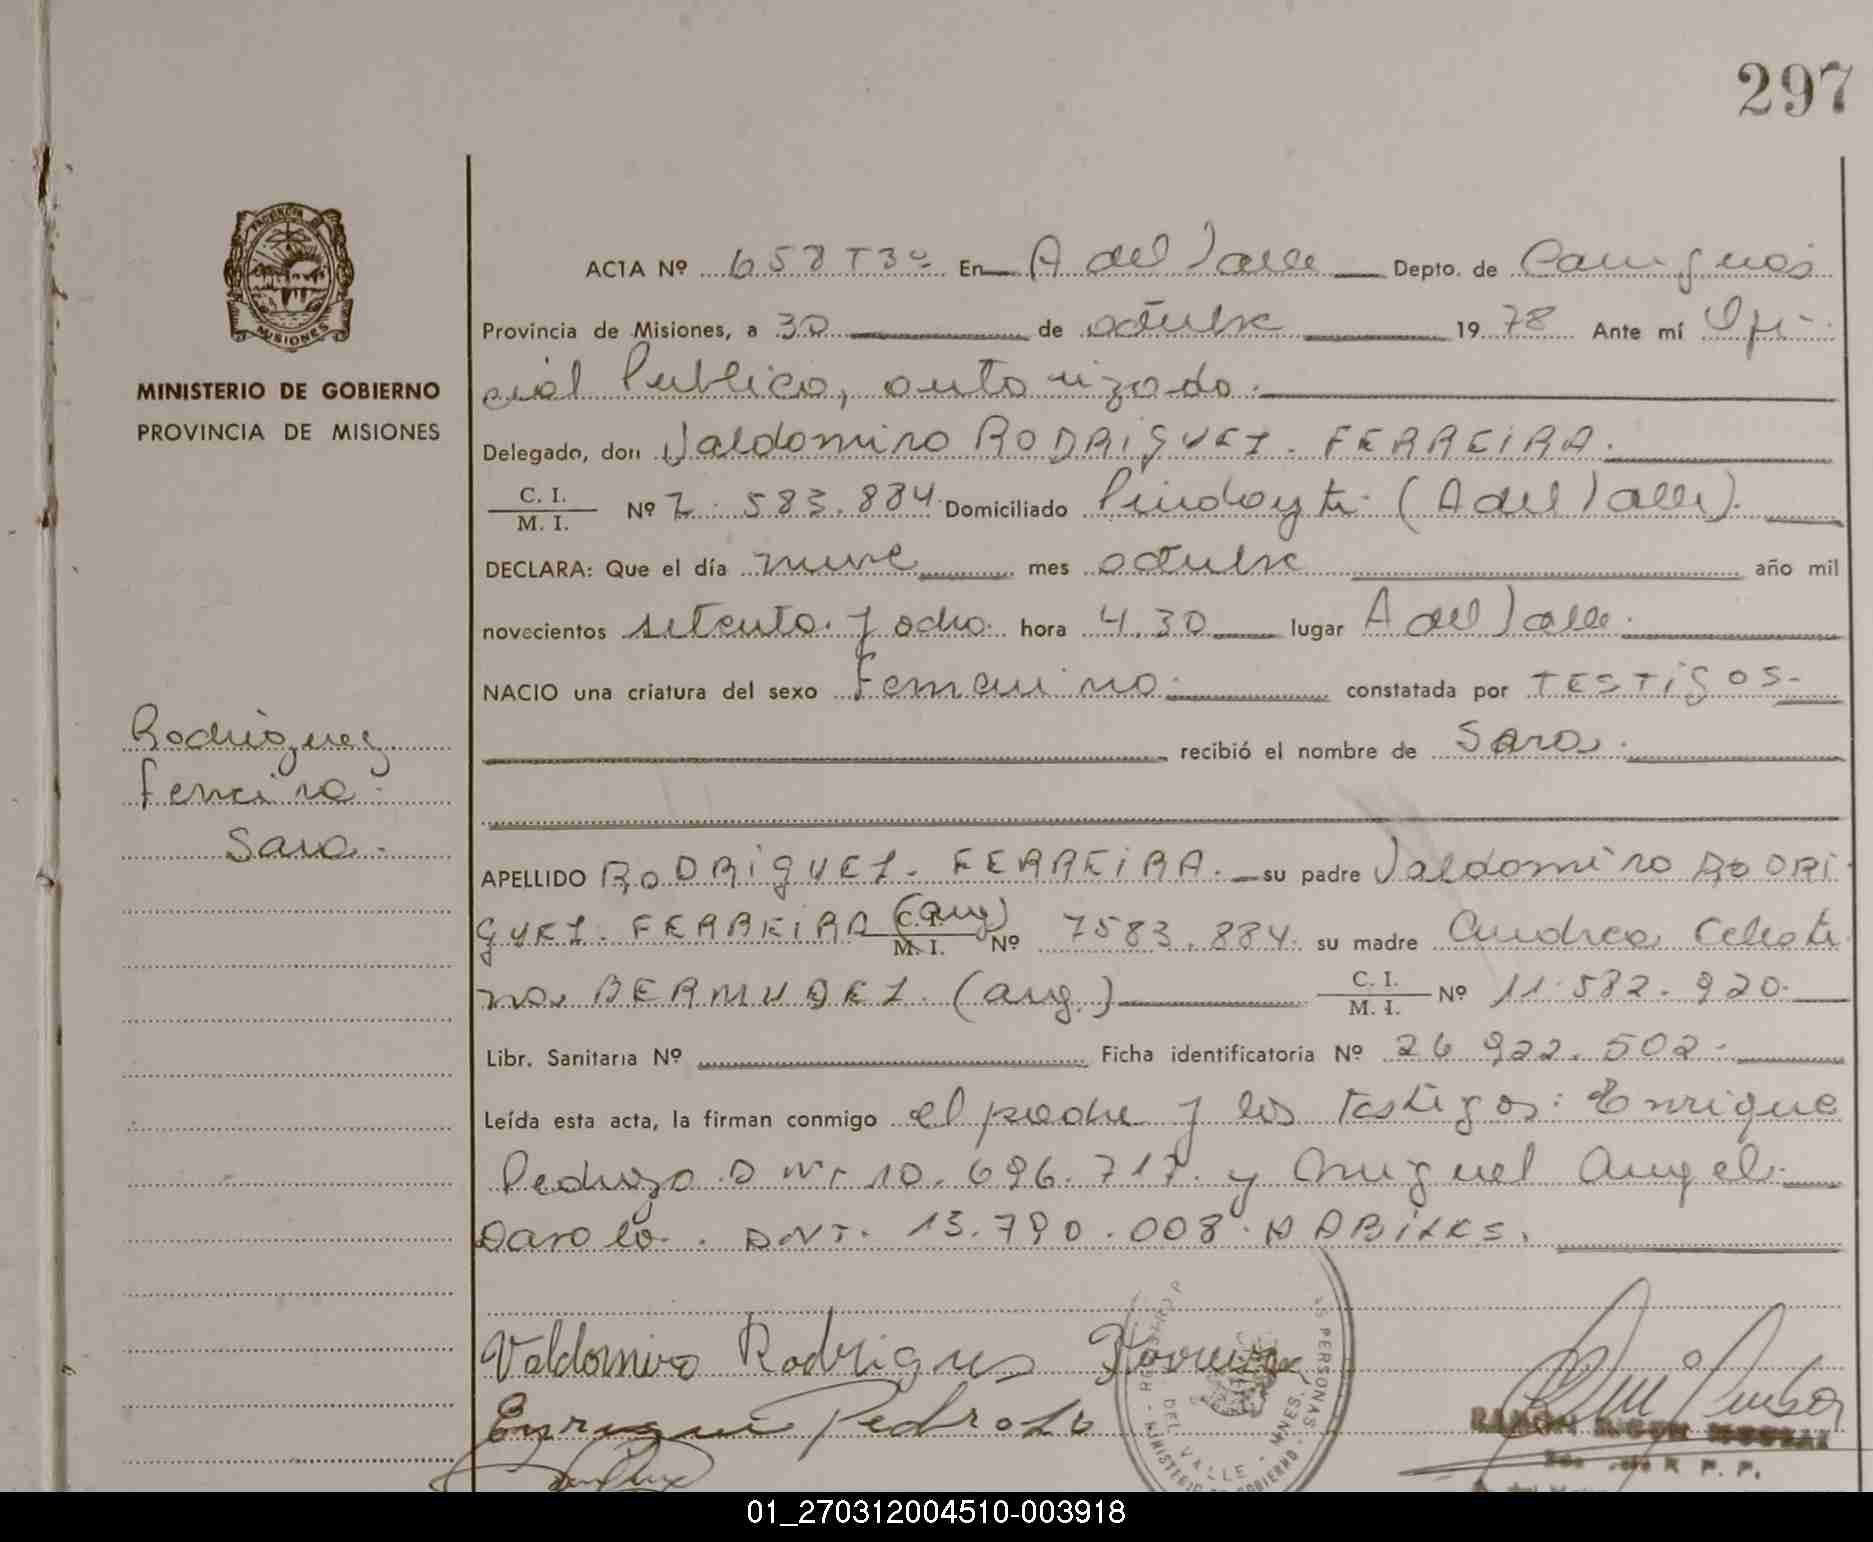 297
PROVINCIA
MISIONES
MINISTERIO DE GOBIERNO
PROVINCIA DE MISIONES
ACTA Nº 658 T3º En A del Valle Depto. de Cainguás
Provincia de Misiones, a 30 de octubre 1978 Ante mí Ofi
cial Publico, autorizado.
Delegado, don Valdomiro RODRIGUEZ. FERREIRA.
C. I.
M. I. Nº 7.583.884. Domiciliado Pindayti (A del Valle).
DECLARA: Que el día nueve mes octubre año mil
novecientos setenta y ocho. hora 4.30 lugar A del Valle.
NACIO una criatura del sexo Femenino. constatada por TESTIGOS-
recibió el nombre de Sara.
Rodriguez
Ferreira.
Sara.
APELLIDO RODRIGUEZ. FERREIRA. su padre Valdomiro RODRI
GUEZ. FERREIRA (arg) C. I. M. I. Nº 7583.884. su madre Andrea Celesti
na BERMUDEZ. (arg.) C. I. M. I. Nº 11.582.920.
Libr. Sanitaria Nº Ficha identificatoria Nº 26 922.502.
Leída esta acta, la firman conmigo el padre y los testigos: Enrique
Pedrozo. D N I 10.696.717. y Miguel Angel
DNI. 13.790.008. HABILES.
Valdomiro Rodrigues Ferreira
Enrique Pedrozo
PERSONAS
DEL VALLE - MNES.
MINISTERIO DE GOBIERNO
RAMON
R. P. P.
01_270312004510-003918